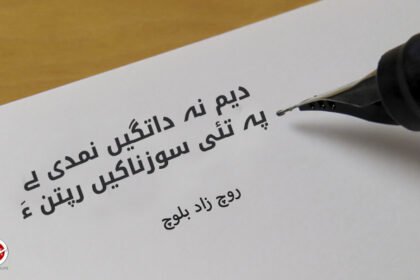 دیم نہ داتگیں نمدی ے
پہ تئی سوزناکیں رپتن ءَ
روچ زاد بلوچ